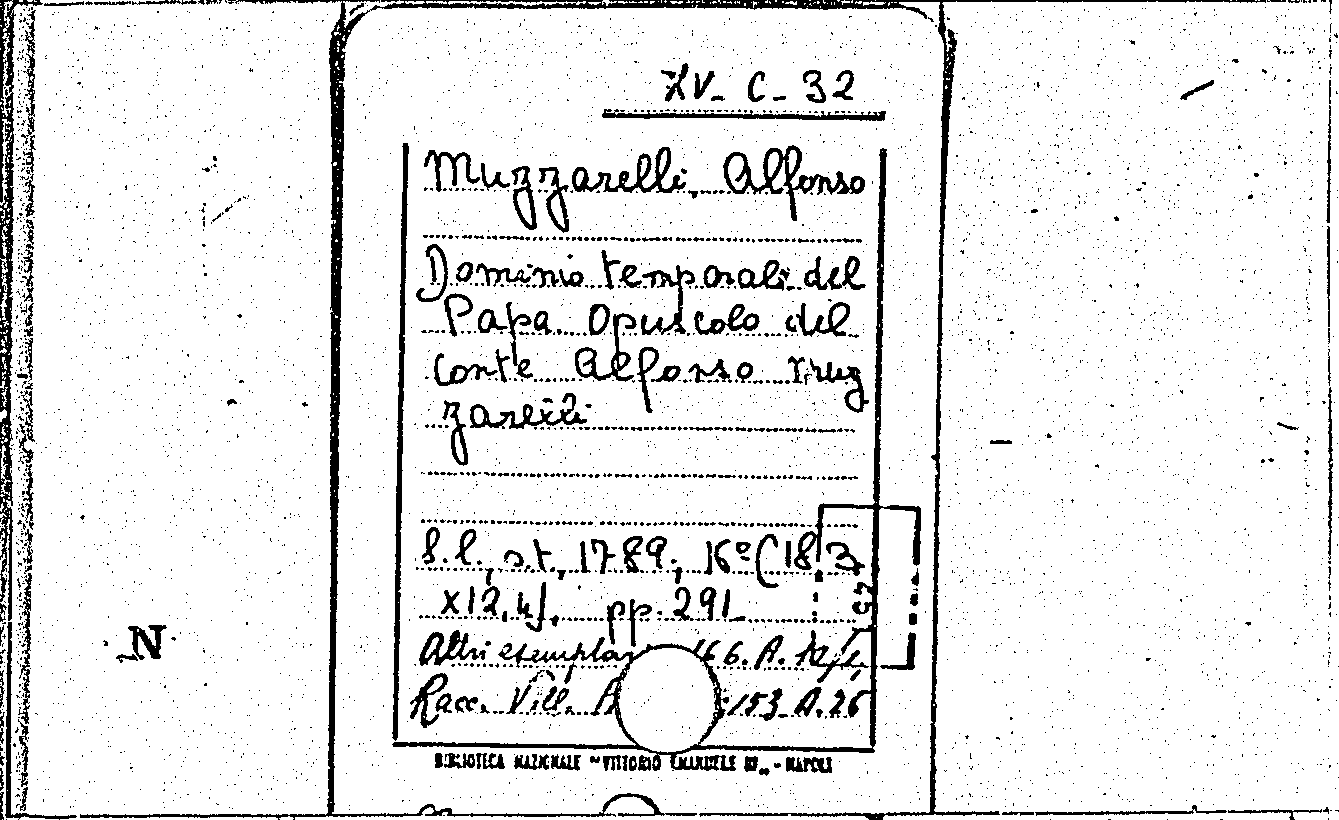 XV- C - 32
Muzzarelli, Alfonso
Dominio temporali del
Papa. Opuscolo del
conte Alfonso Muz
zarelli
S.l., s.t., 1789, 16º (18,3
x12,4), pp. 291
Altri 166. A.
Racc. Vill. 153 A.26
BIBLIOTECA NAZIONALE "VITTORIO EMANUELE III" - NAPOLI
N